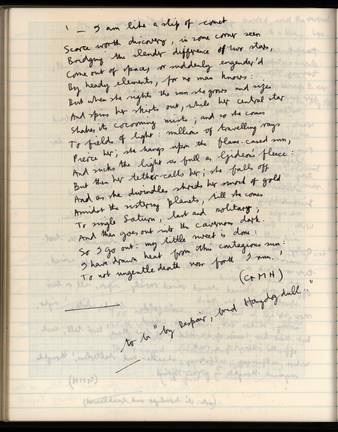 ' — I am like a slip of comet
Scarce worth discovery, in some corner seen
Bridging the slender difference of two stars,
Come out of space, or suddenly engender'd
By heady elements, for no man knows:
But when she sights the sun she grows and sizes
And spins her skirts out, while her central star
Shakes its cocooning mists; and so she comes
To fields of light; millions of travelling rays
Pierce her; she hangs upon the flame-cased sun,
And sucks the light as full as Gideon's fleece:
But then her tether calls her; she falls off
And as she dwindles shreds her smock of gold
Amidst the sistering planets, till she comes
To single Saturn, last and solitary;
And then goes out into the cavernous dark.
So I go out: my little sweet is done:
I have drawn heat from this contagious sun:
To not ungentle death now forth I run.
(GMH)
to b "by Despair, bred
(HHH)